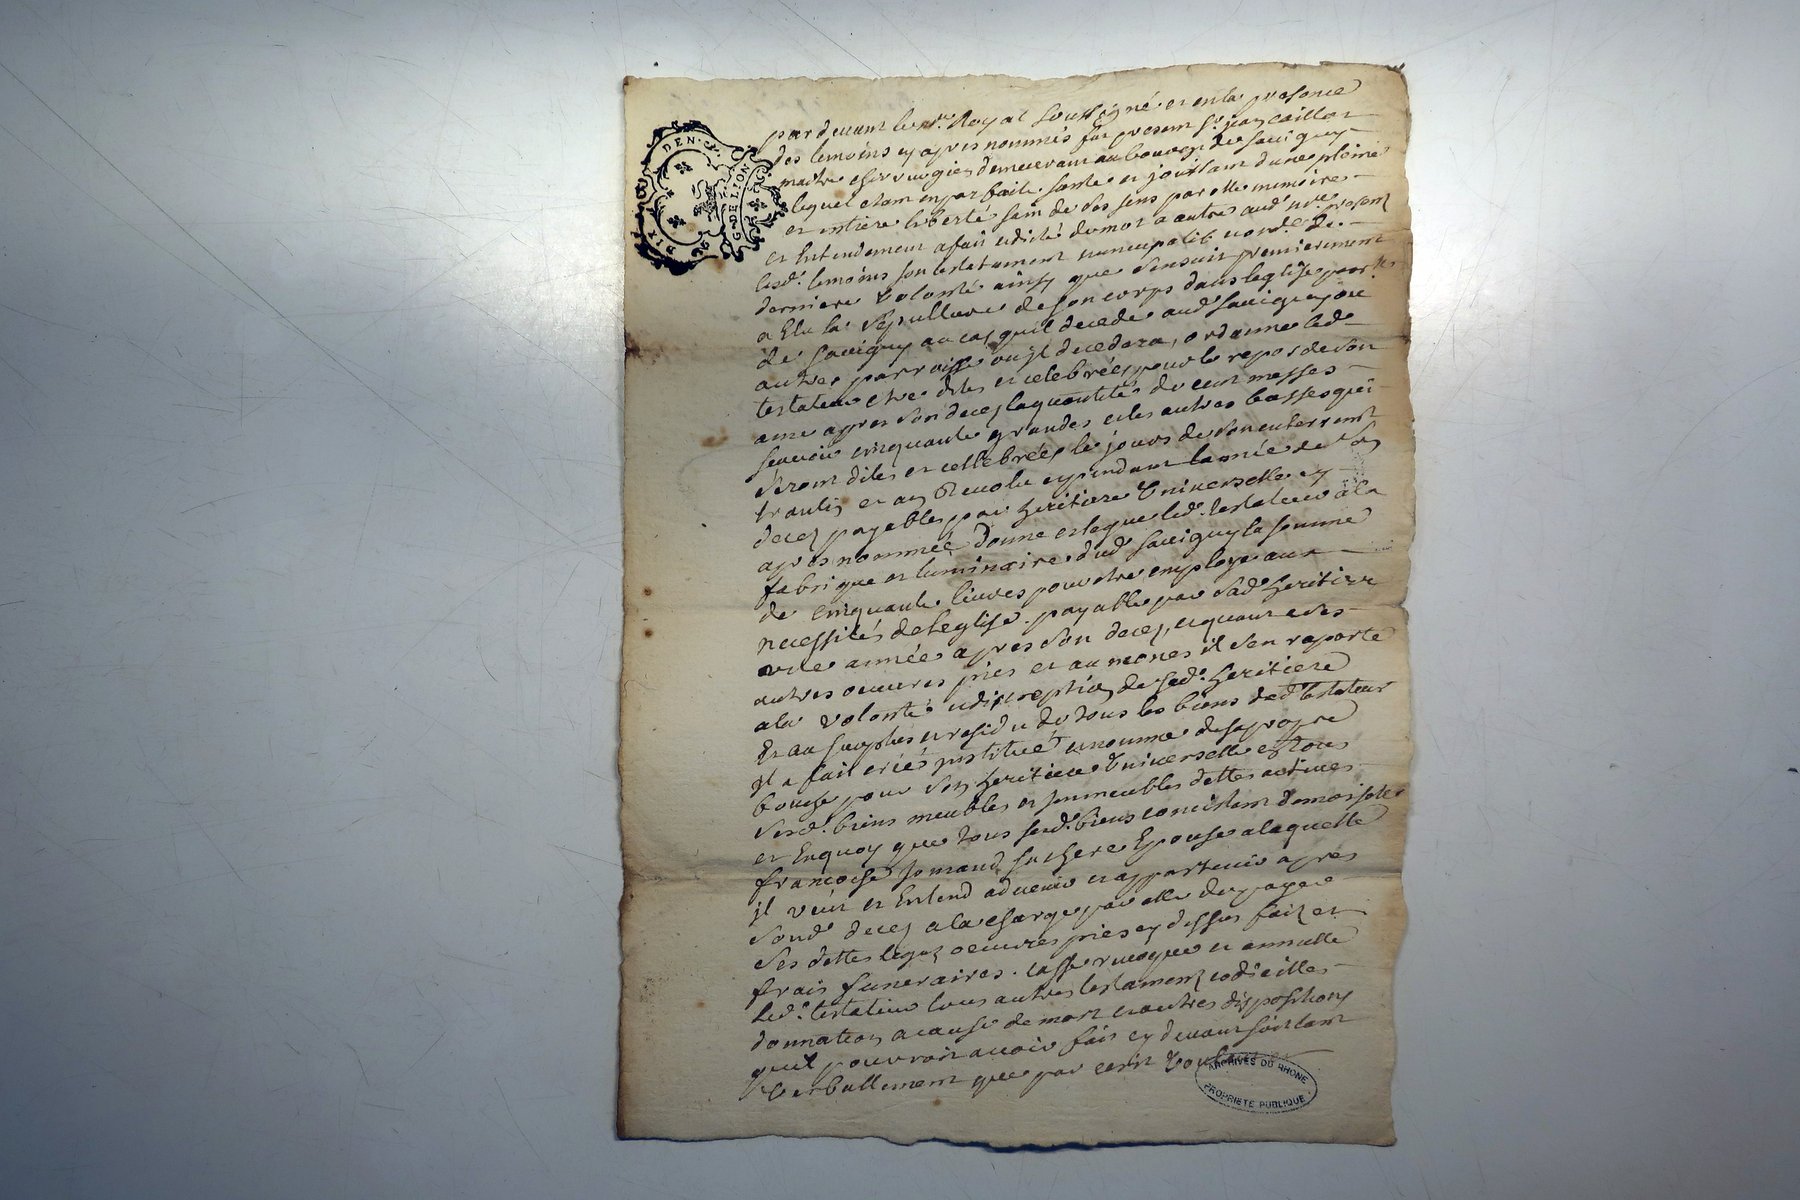 DIX DEN.
G. DE LION
par devant le no.re Royal soussigné et en la presance
des temoins cy apres nommés fut present s.r
maitre chirurgien demeurant au bourg de Savigny
lequel etant en parfaite santé et jouissant d'une pleine
et entiere liberté sain de ses sens parolle memoire
et Entendement a fait et dicté de mot a autre aud. no.re present
lesd. temoins son testament nuncupatif et de
derniere volonté ainsy que s'ensuit premierement
a Elu la sepulture de son corps dans leglise
de Savigny au cas quil decede aud Savigny ou
autres parroisse ou il decedera, ordonne led.
testateur etre dites et celebrées pour le repos de son
ame apres son decez la quantité de cent messes
scavoir cinquante grandes et les autres basses qui
seront dites et cellebrées le jours de son enterrement
et au Revolu et pendant lannée de son
decez payables par heritiere Universelle cy
apres nommée donne et legue led. testateur a la
fabrique et luminaire dud Savigny la somme
de cinquante livres pour etre employé aux
necessités de leglise payable par sad. heritiere
une année apres son decez, et quant a ses
autres oeuvres pies et aumones il s'en raporte
a la volonté et discreption de sad. heritiere
Et au surplus et residu de tous les biens dud testateur
jl a fait créé jnstitué et nomme de sa propre
bouche pour son heritiere Universelle en tous
sesd. biens meubles et jmmeubles dettes actives
et Enquoy que tous sesd. biens concistent demoiselle
francoise sa chere Epouse a laquelle
jl veut et Entend advenir et appartenir apres
sond. decez a la charge par elle de payer
ses dettes legaz oeuvres pies cy dessus faiz et
frais funeraires. casse revoque et annulle
led. testateur tous autres testament codicilles
donnation a cause de mort et autres dispositions
quil pourroit avoir fait cy devant soit tant
verballement que par ecrit
ARCHIVES DU RHONE
PROPRIETE PUBLIQUE